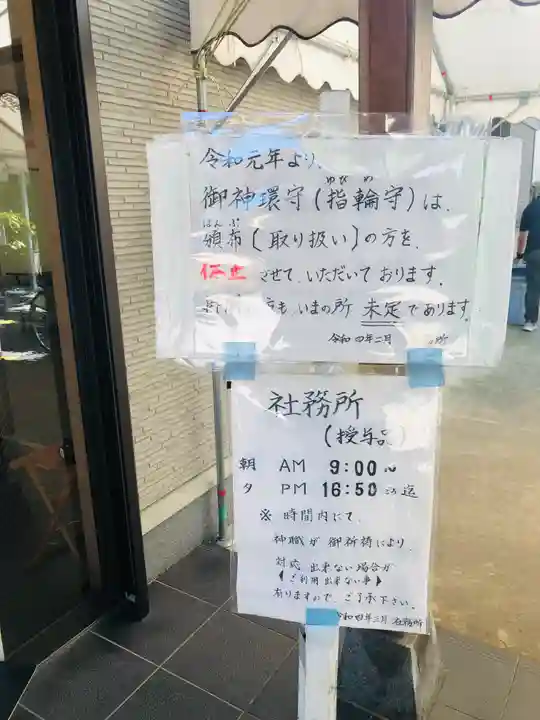 令和元年より、
ゆびわ
御神環守(指輪守)は、
はんぷ
頒布[取り扱い]の方を、
休止させて、いただいております。
も いまの所 未定であります。
令和四年二月 所
社務所
(授与品)
朝 AM 9:00〜
夕 PM 16:50 迄
※ 時間内にて、
神職が 御祈祷により、
対応 出来ない場合が
【ご利用出来ない事】
有りますので、ご了承下さい。
令和四年二月 社務所